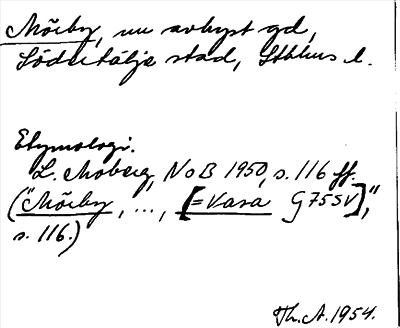 Mörby, nu avhyst gd,
Södertälje stad, Sthlms l.
Etymologi.
L. Moberg, NoB 1950, s. 116 ff.
("Mörby, ..., [=Vasa G75SV],"
s. 116.)
Th. A. 1954.